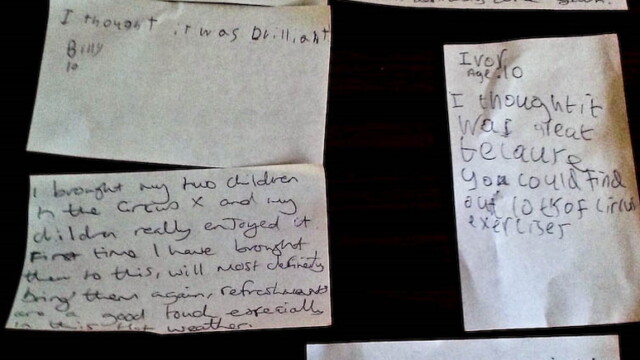 I thought it was brilliant
Billy
10
I brought my two children
to the Circus X and my
children really enjoyed it
First time I have brought
them to this, will most definetly
bring them again, refreshments
are a good touch especially
in this Hot weather.
Ivor
Age:10
I thought it
was great
because
you could find
out lots of circus
exercises